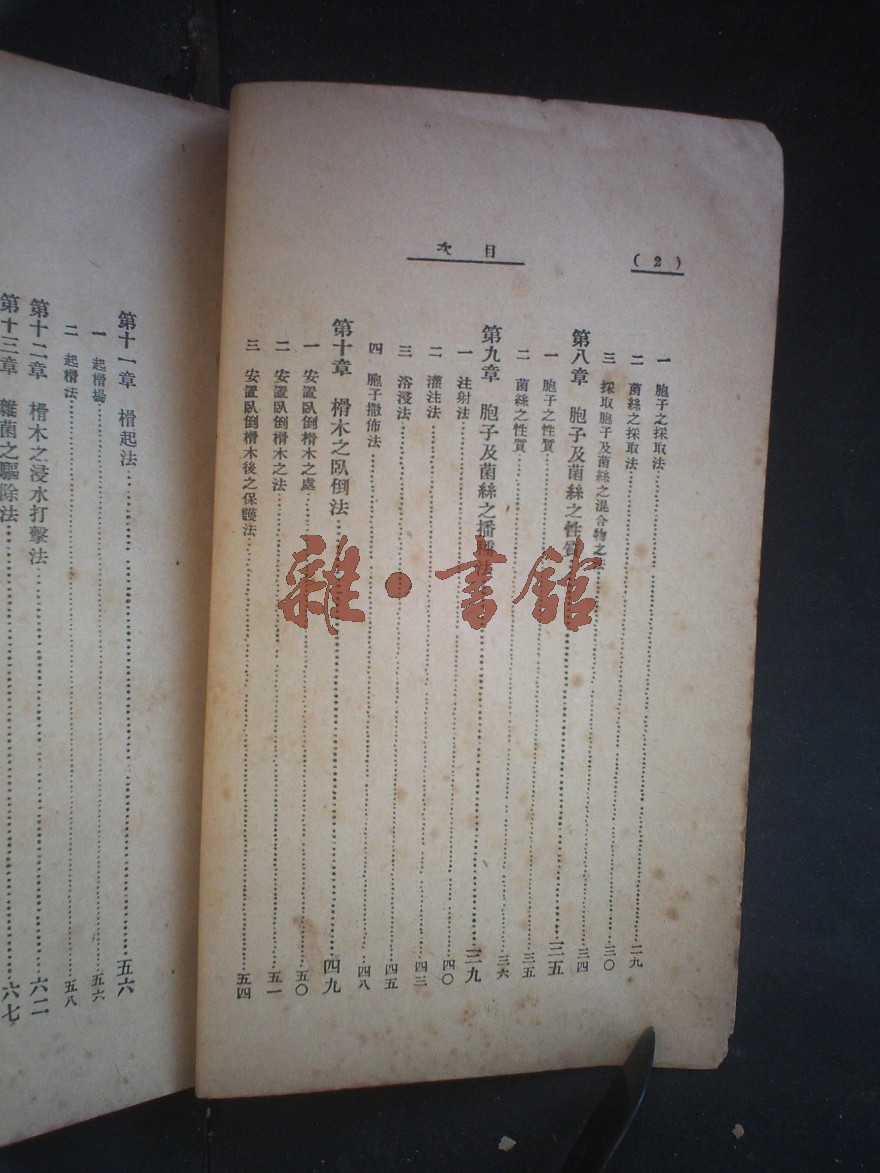 (2)
目次
一 胞子之採取法……二九
二 菌絲之採取法……三〇
三 採取胞子及菌絲之混合物之法……三四
第八章 胞子及菌絲之性質……三五
一 胞子之性質……三五
二 菌絲之性質……三六
第九章 胞子及菌絲之播種法……三九
一 注射法……四〇
二 灌注法……四三
三 浴浸法……四五
四 胞子撒佈法……四八
第十章 榾木之臥倒法……四九
一 安置臥倒榾木之處……五〇
二 安置臥倒榾木之法……五一
三 安置臥倒榾木後之保護法……五四
第十一章 榾起法……五六
一 起榾場……五六
二 起榾法……五八
第十二章 榾木之浸水打擊法……六二
第十三章 雜菌之驅除法……六七
雜·書館